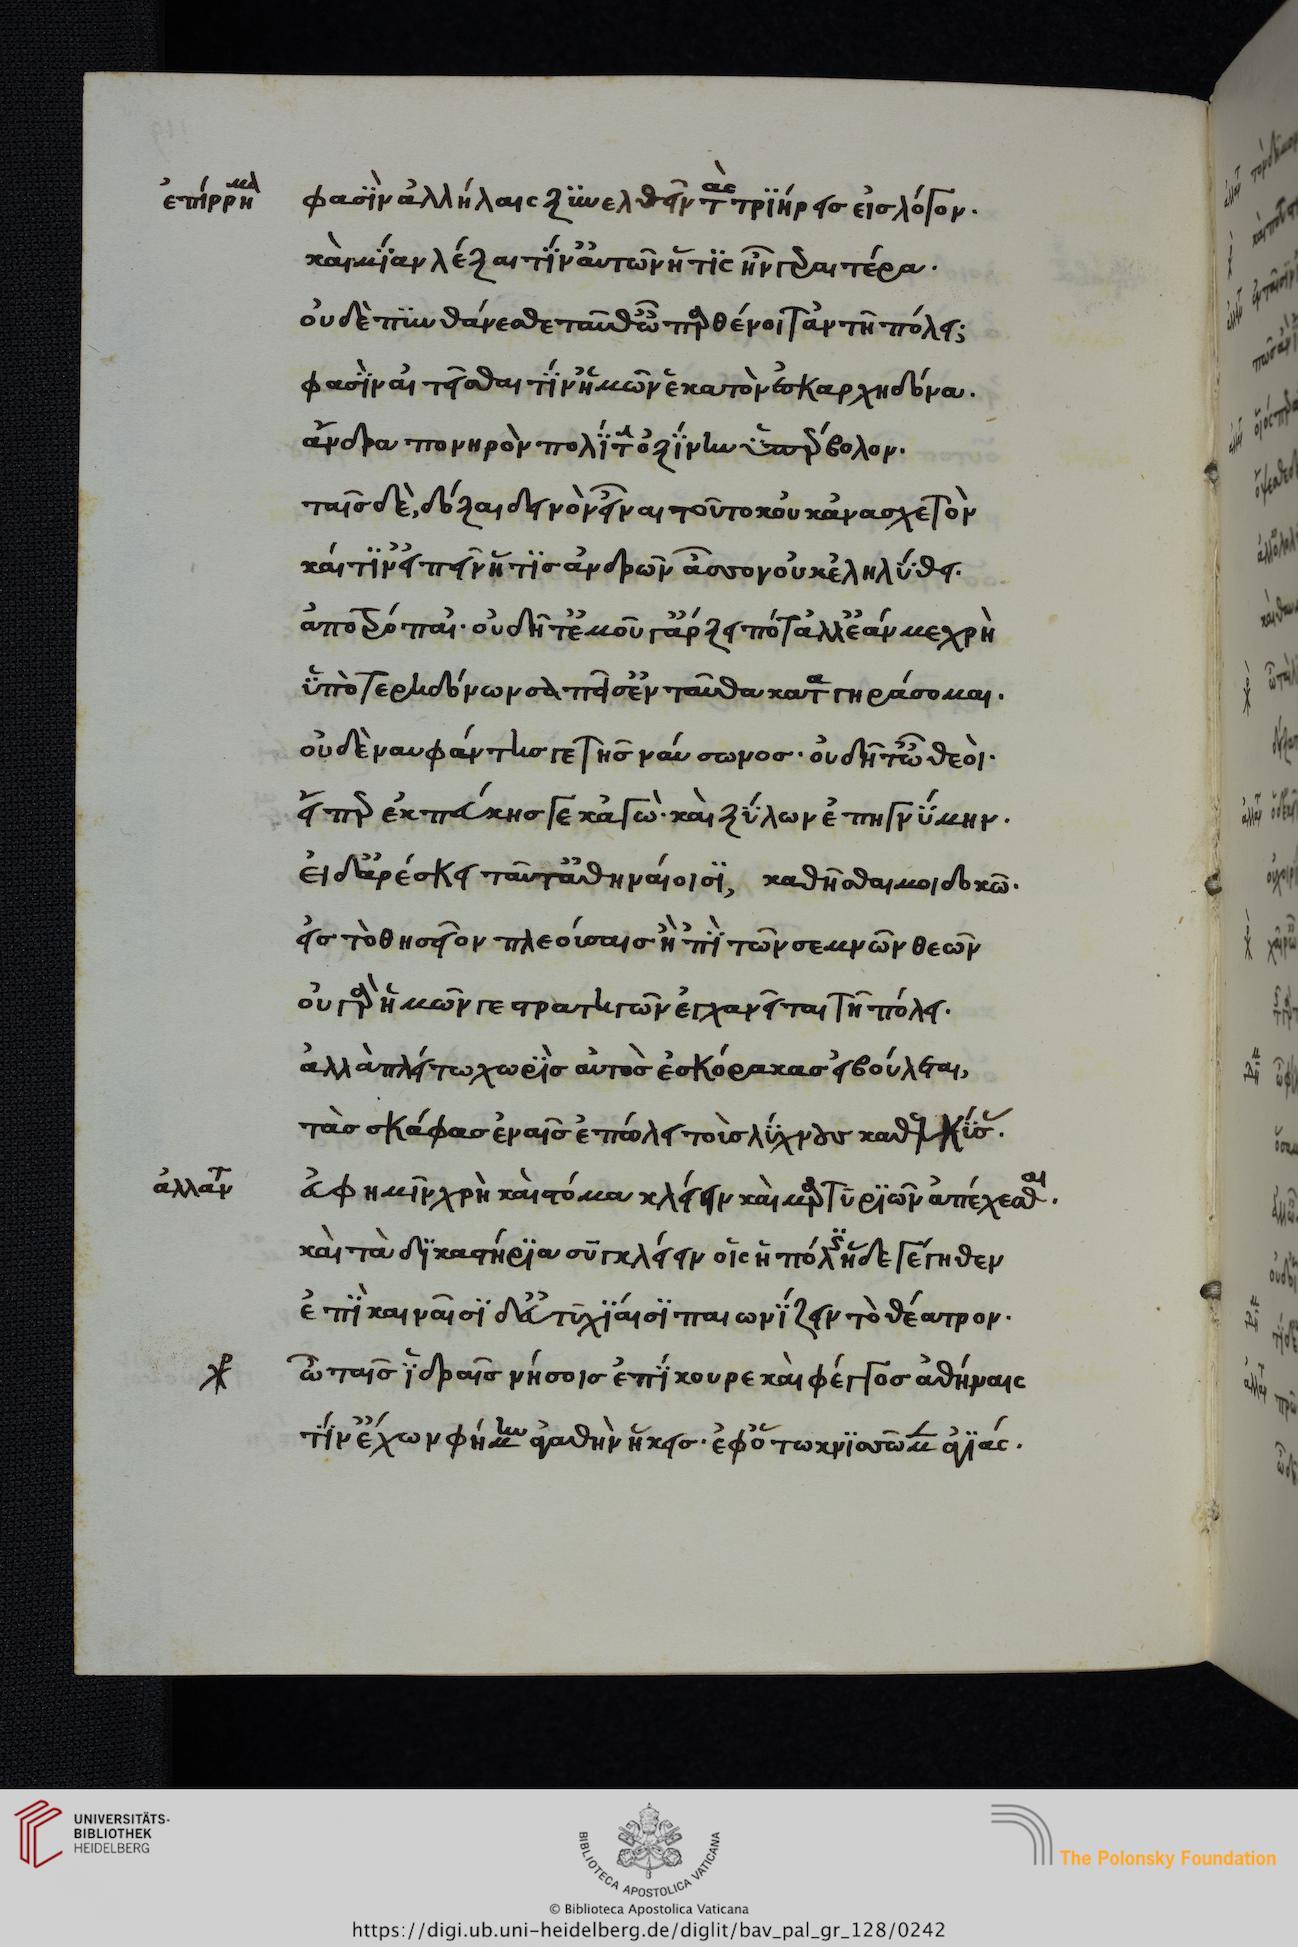 ἐπίρρημα φασὶν ἀλλήλαις ξυνελθεῖν τὰς τριήρεις εἰς λόγον.
καὶ μίαν λέξαι τίν' αὐτῶν ἥτις ἦν γεραιτέρα.
οὐδὲ πυνθάνεσθε ταῦθ' ὦ παρθένοι τἀν τῇ πόλει;
φασὶν αἰτεῖσθαι τίν' ἡμῶν ἑκατὸν ἐς καρχηδόνα.
ἄνδρα πονηρὸν πολίτην ὀξίνην ὑπέρβολον.
ταῖς δὲ, δόξαι δεινὸν εἶναι τοῦτο κοὐκ ἀνασχετὸν
καί τιν' εἰπεῖν ἥτις ἀνδρῶν ἆσσον οὐκ ἐληλύθει.
ἀποτρόπαι'· οὐ δῆτ' ἐμοῦ γ' ἄρξει ποτ' ἀλλ' ἐάν με χρὴ
ὑπὸ τερηδόνων σαπεῖσ' ἐνταῦθα καταγηράσομαι.
οὐδὲ ναυφάντης γε τῆς ναύσωνος· οὐ δῆτ' ὦ θεοί·
εἴπερ ἐκ πεύκης γε κἀγὼ· καὶ ξύλων ἐπηγνύμην.
εἰ δ' ἀρέσκει ταῦτ' ἀθηναίοισι, καθῆσθαι μοι δοκῶ.
εἰς τὸ θησεῖον πλεούσαις ἢ 'πὶ τῶν σεμνῶν θεῶν
οὐ γὰρ ἡμῶν γε στρατηγῶν ἐγχανεῖται τῇ πόλει.
ἀλλὰ πλείτω χωρὶς αὐτὸς ἐς κόρακας εἰ βούλεται,
τὰς σκάφας ἐν αἷς ἐπώλει τοὺς λύχνους καθελκύσας.
ἀλλαντ εὐφημεῖν χρὴ καὶ στόμα κλείειν καὶ μαρτυριῶν ἀπέχεσθαι.
καὶ τὰ δικαστήρια συγκλείειν οἷς ἡ πόλις ἥδε γέγηθεν
ἐπὶ καιναῖσι δ' εὐτυχίαισι παιωνίζειν τὸ θέατρον.
χρ ὦ ταῖς ἱεραῖς νήσοις ἐπίκουρε καὶ φέγγος ἀθήναις
τίν' ἔχων φήμην ἀγαθὴν ἥκεις· ἐφ' ὅτῳ κνισῶμεν ἀγυιάς.
UNIVERSITÄTS-
BIBLIOTHEK
HEIDELBERG
BIBLIOTECA APOSTOLICA VATICANA
The Polonsky Foundation
© Biblioteca Apostolica Vaticana
https://digi.ub.uni-heidelberg.de/diglit/bav_pal_gr_128/0242